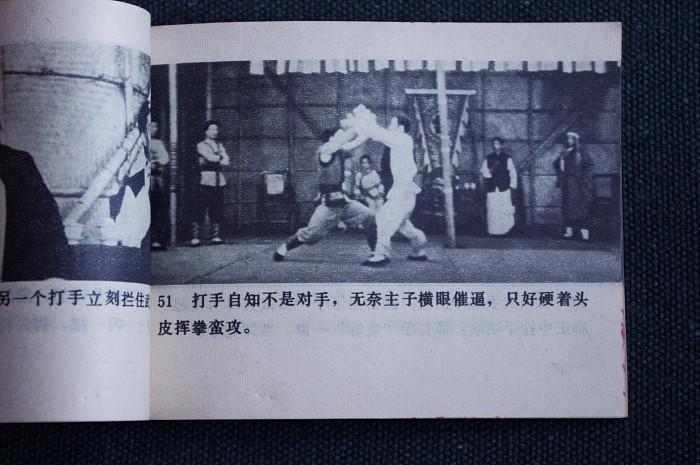 另一个打手立刻拦住
51 打手自知不是对手，无奈主子横眼催逼，只好硬着头
皮挥拳蛮攻。